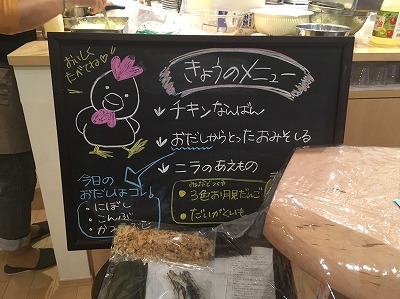 おいしく
たべてね♡
きょうのメニュー
チキンなんばん
おだしからとったおみそしる
ニラのあえもの
今日の
おだしはコレ!
・にぼし
・こんぶ
みんなでつくる
3色お月見だんご
だいがくいも